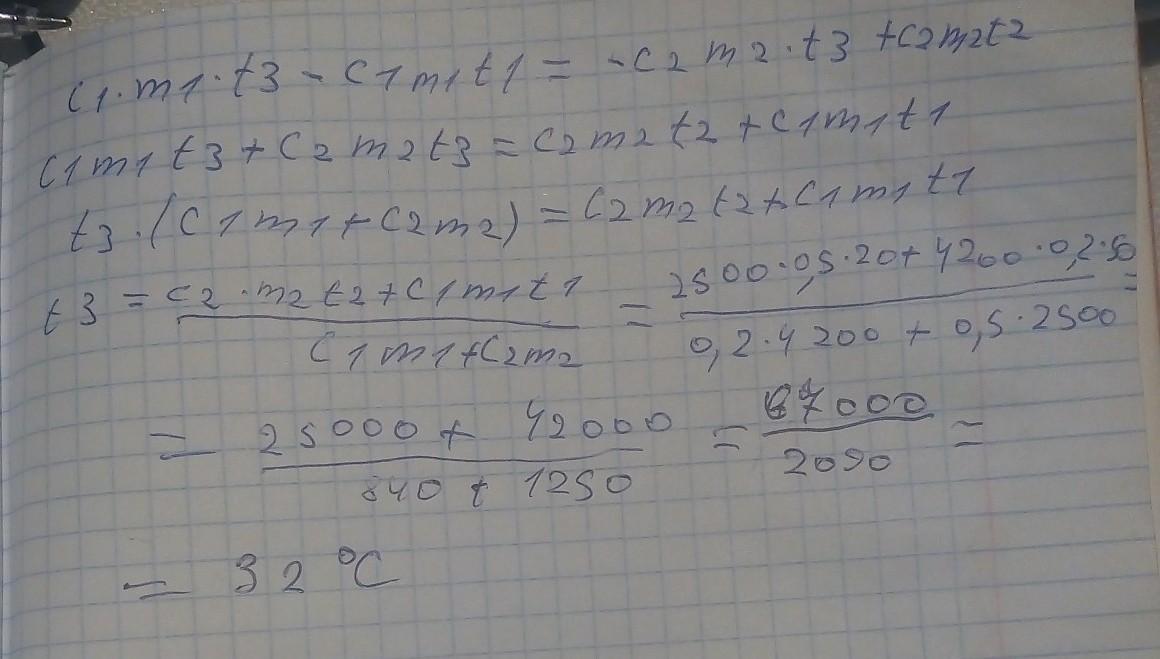 c1·m1·t3 - c1m1t1 = -c2m2·t3 + c2m2t2
c1m1t3 + c2m2t3 = c2m2t2 + c1m1t1
t3·(c1m1 + c2m2) = c2m2t2 + c1m1t1
t3 = c2·m2t2 + c1m1t1 / c1m1 + c2m2 = 2500·0,5·20 + 4200·0,2·50 / 0,2·4200 + 0,5·2500 =
= 25000 + 42000 / 840 + 1250 = 67000 / 2090 =
= 32 °C